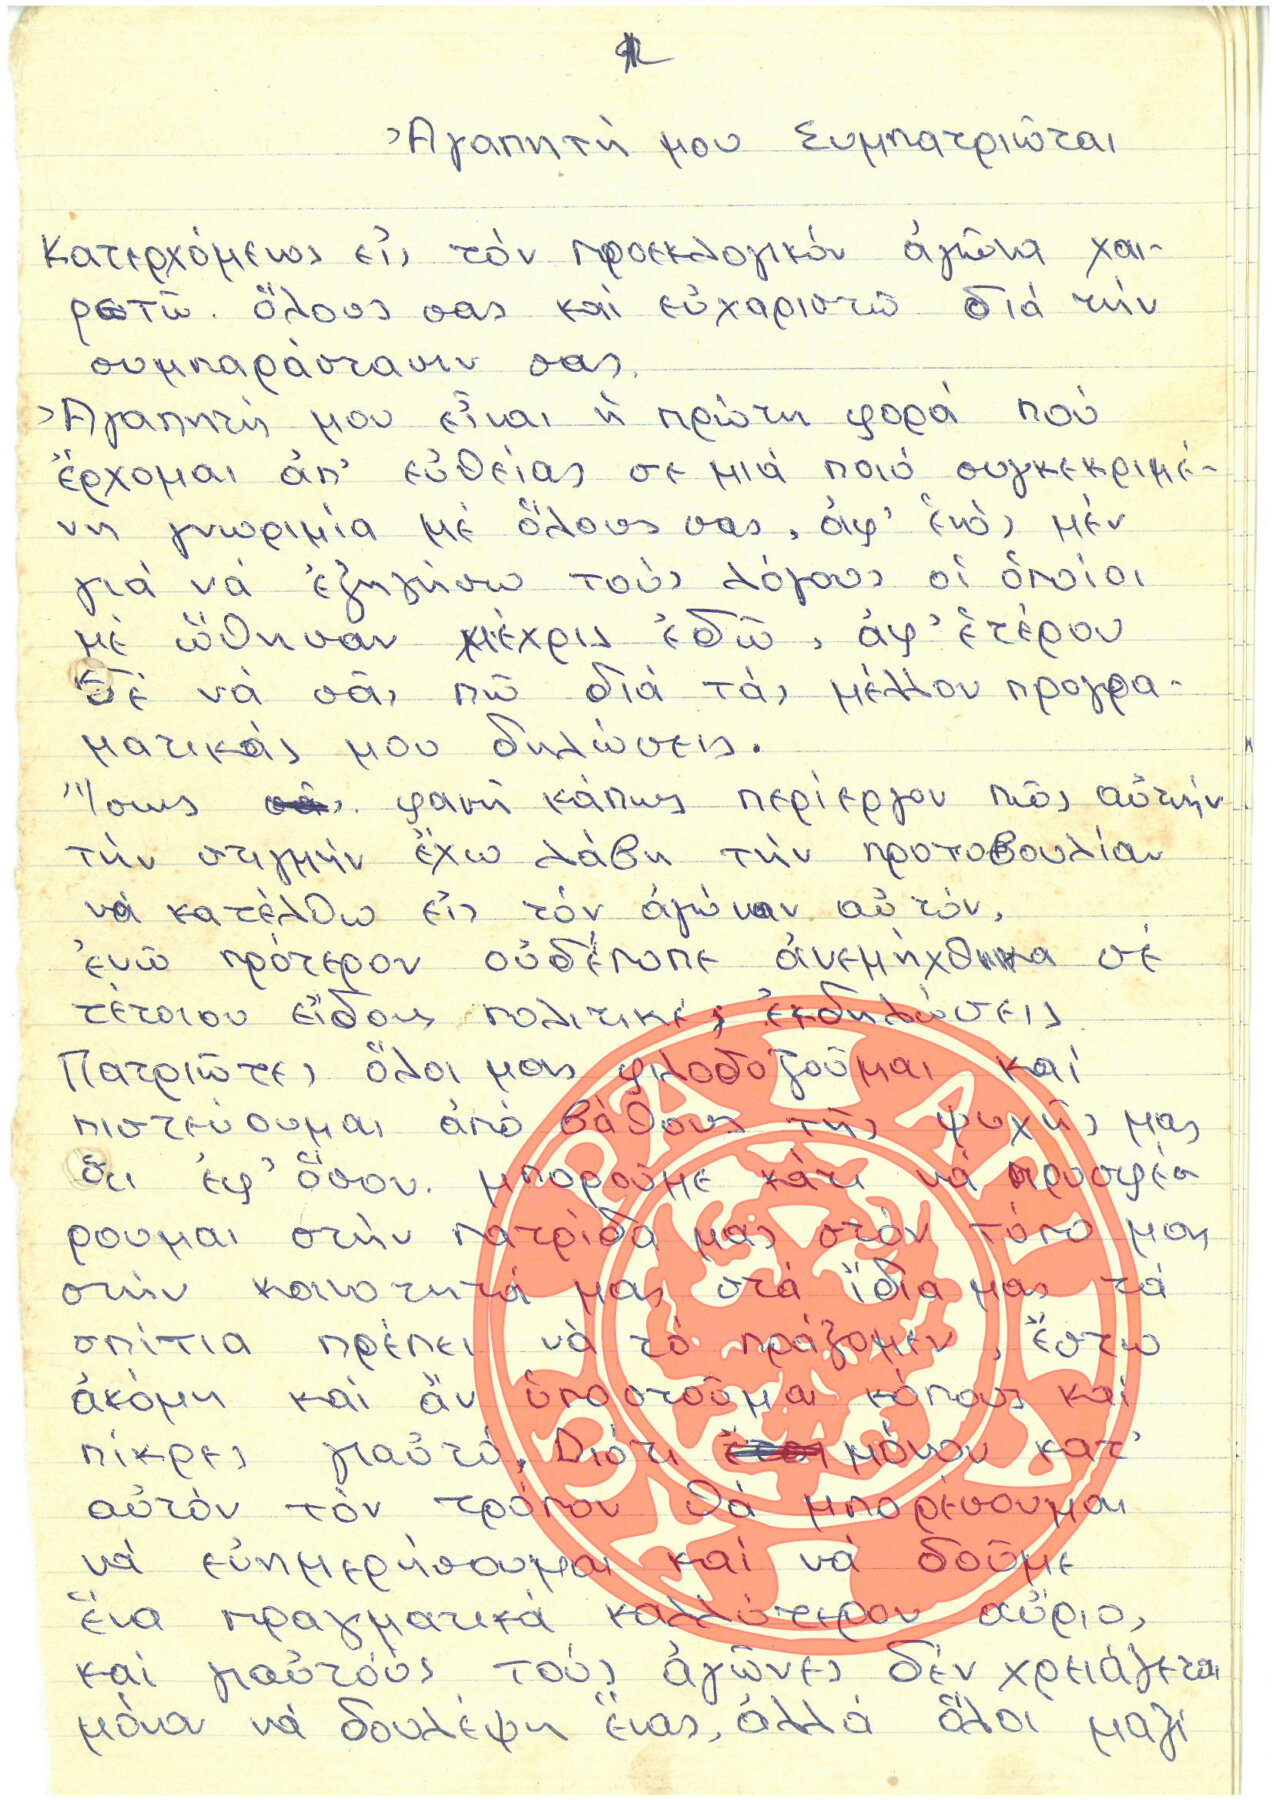 Ἀγαπητή μου Συμπατριῶται
Κατερχόμενος εἰς τόν προεκλογικόν ἀγῶνα χαι-
ρετῶ ὅλους σας καί εὐχαριστῶ διά τήν
συμπαράστασιν σας.
Ἀγαπητή μου εἶναι ἡ πρώτη φορά πού
ἔρχομαι ἀπ' εὐθείας σε μιά ποιό συγκεκριμέ-
νη γνωριμία μέ ὅλους σας, ἀφ' ἑνός μέν
γιά νά ἐξηγήσω τούς λόγους οἱ ὁποίοι
μέ ὤθησαν μέχρις ἐδῶ, ἀφ' ἑτέρου
δέ νά σᾶς πῶ διά τάς μέλλον προγρα-
ματικάς μου δηλώσεις.
Ἴσως φανῆ κάπως περίεργον πῶς αὐτήν
τήν στιγμήν ἔχω λάβη τήν προτοβουλίαν
νά κατέλθω εἰς τόν ἀγώναν αὐτόν,
ἐνῶ πρότερον οὐδέποπε ἀνεμήχθηκα σέ
τέτοιου εἴδους πολιτικές ἐκδηλώσεις
Πατριῶτες ὅλοι μας φιλοδοξοῦμαι καί
πιστεύουμαι ἀπό βάθους τῆς ψυχῆς μας
ὅτι ἐφ' ὅσον μποροῦμε κάτι νά προσφέσ
ρουμαι στήν πατρίδα μας στόν τόπο μας
στήν κοινοτητά μας στά ἴδια μας τά
σπίτια πρέπει νά τό πράξομεν, ἔστω
ἀκόμη καί ἄν ὑποστοῦμαι κόπους καί
πίκρες γιαὐτό, Διότι μόνον κατ'
αὐτόν τόν τρόπον θά μπορέσουμαι
νά εὐημερήσουμαι καί νά δοῦμε
ἕνα πραγματικά καλλύτερον αὔριο,
καί γιαὐτούς τούς ἀγῶνες δέν χρειάζεται
μόνον νά δουλέψη ἕνας, ἀλλά ὅλοι μαζί